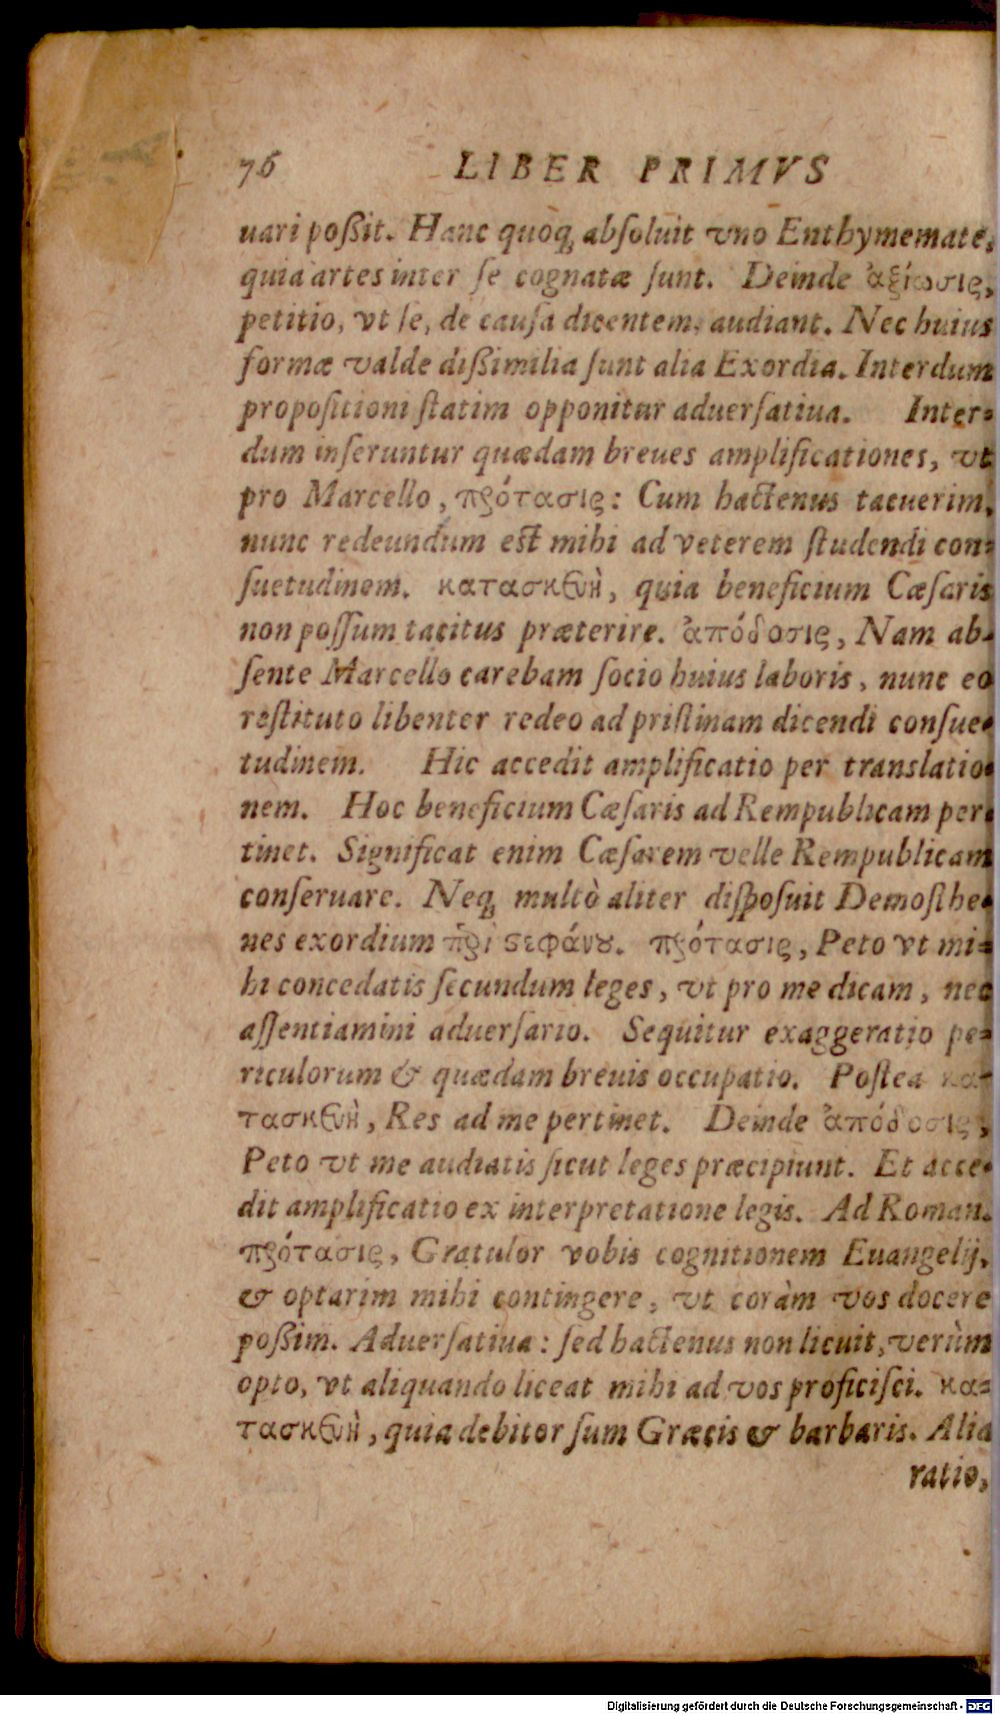 76 LIBER PRIMVS
uari poßit. Hanc quoq; abſoluit vno Enthymemate,
quia artes inter ſe cognatæ ſunt. Deinde ἀξίωσις,
petitio, vt ſe, de cauſa dicentem, audiant. Nec huius
formæ valde dißimilia ſunt alia Exordia. Interdum
propoſitioni ſtatim opponitur aduerſatiua. Inter-
dum inſeruntur quædam breues amplificationes, vt
pro Marcello, πρότασις: Cum hactenus tacuerim,
nunc redeundum est mihi ad veterem ſtudendi con-
ſuetudinem. κατασκευὴ, quia beneficium Cæſaris
non poſſum tacitus præterire. ἀπόδοσις, Nam ab-
ſente Marcello carebam ſocio huius laboris, nunc eo
reſtituto libenter redeo ad priſtinam dicendi conſue-
tudinem. Hic accedit amplificatio per translatio-
nem. Hoc beneficium Cæſaris ad Rempublicam per-
tinet. Significat enim Cæſarem velle Rempublicam
conſeruare. Neq; multò aliter diſpoſuit Demoſthe-
nes exordium περὶ ϛεφάνου. πρότασις, Peto vt mi-
hi concedatis ſecundum leges, vt pro me dicam, nec
aſſentiamini aduerſario. Sequitur exaggeratio pe-
riculorum & quædam breuis occupatio. Poſtea κα-
τασκευὴ, Res ad me pertinet. Deinde ἀπόδοσις,
Peto vt me audiatis ſicut leges præcipiunt. Et acce-
dit amplificatio ex interpretatione legis. Ad Roman.
πρότασις, Gratulor vobis cognitionem Euangelij,
& optarim mihi contingere, vt coràm vos docere
poßim. Aduerſatiua: ſed hactenus non licuit, verùm
opto, vt aliquando liceat mihi ad vos proficiſci. κα-
τασκευὴ, quia debitor ſum Græcis & barbaris. Alia
ratio,
Digitalisierung gefördert durch die Deutsche Forschungsgemeinschaft - DFG